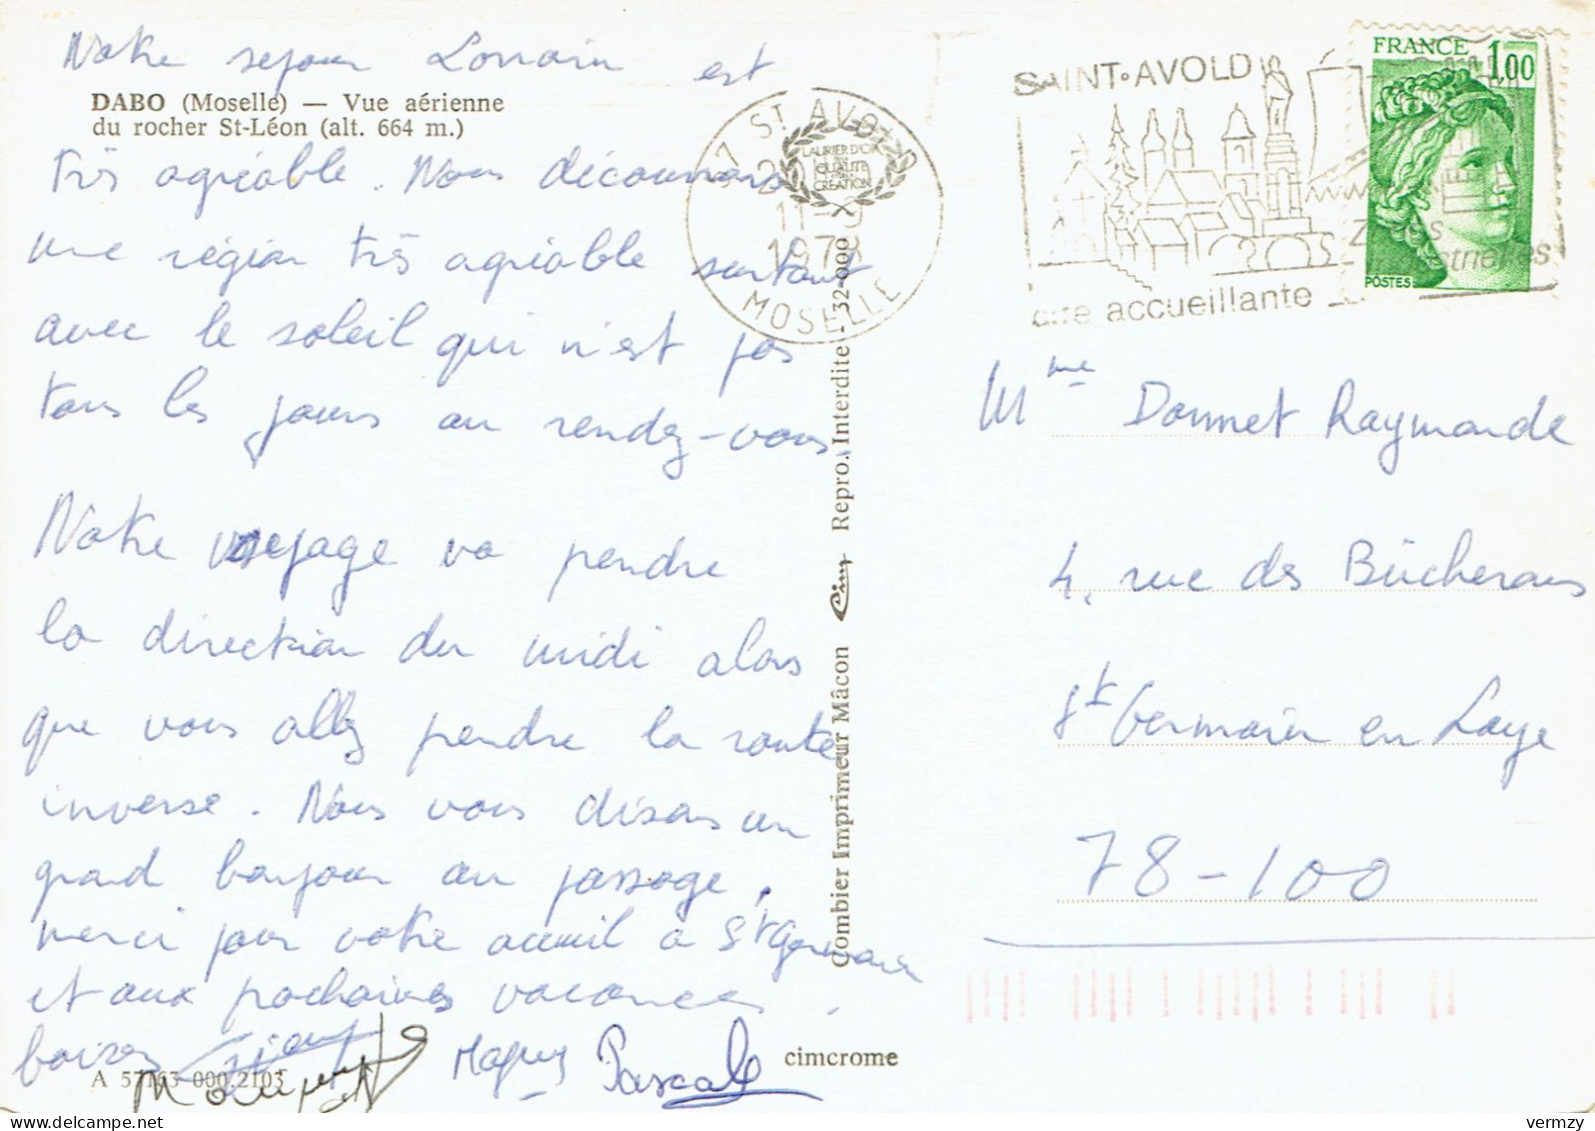 Notre sejour Lorrain est
DABO (Moselle) — Vue aérienne
du rocher St-Léon (alt. 664 m.)
très agréable. Nous découvrons
une région très agréable surtout
avec le soleil qui n'est pas
tous les jours au rendez-vous.
Notre voyage va prendre
la direction du midi alors
que vous allez prendre la route
inverse. Nous vous disons un
grand bonjour au passage,
merci pour votre accueil à St Germain
et aux prochaines vacances.
baisers
Pascale
A 57163 000.2105
cimcrome
Combier Imprimeur Mâcon Cim Repro. Interdite 32-000
57 ST AVOLD
MOSELLE
LAURIER D'OR
DE LA
QUALITÉ
CRÉATION
SAINT-AVOLD
cité accueillante
FRANCE 1,00
POSTES
Mme Donnet Raymonde
4, rue des Bûcherons
St Germain en Laye
78-100
vermzy